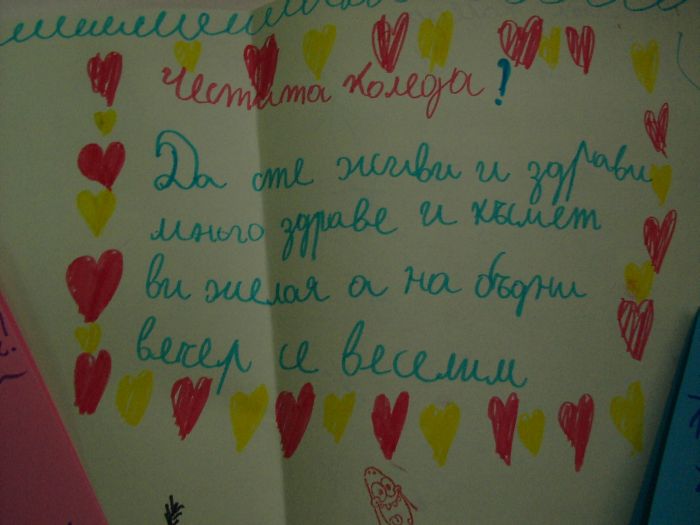 Честита Коледа!
Да сте живи и здрави
много здраве и късмет
ви желая а на бъдни
вечер се веселим